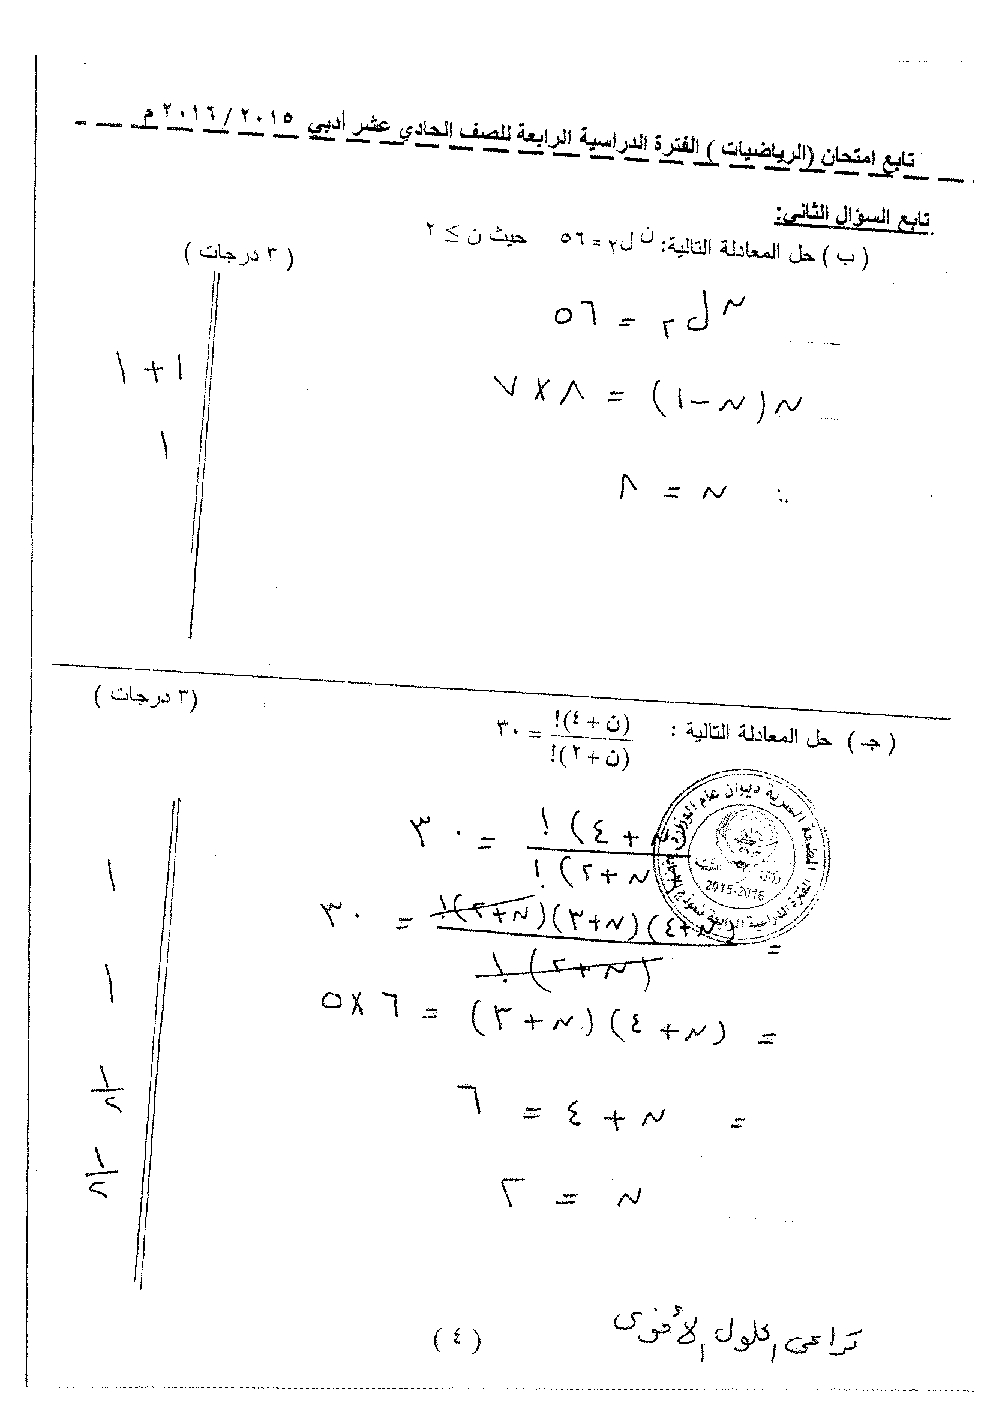 تابع امتحان (الرياضيات) الفترة الدراسية الرابعة للصف الحادي عشر أدبي ٢٠١٥/٢٠١٦ م
تابع السؤال الثاني:
(ب) حل المعادلة التالية: ن ل٢ = ٥٦ حيث ن ≥ ٢ (٣ درجات)
ن ل٢ = ٥٦
ن(ن-١) = ٨ × ٧ ١+١
∴ ن = ٨ ١
(جـ) حل المعادلة التالية: (ن+٤)!/(ن+٢)! = ٣٠ (٣ درجات)
(ن+٤)!/(ن+٢)! = ٣٠
= (ن+٤)(ن+٣)(ن+٢)!/(ن+٢)! = ٣٠ ١
= (ن+٤)(ن+٣) = ٦×٥ ١
= ن+٤ = ٦ ١/٢
ن = ٢ ١/٢
2015-2016
تراعى الحلول الأخرى
(٤)